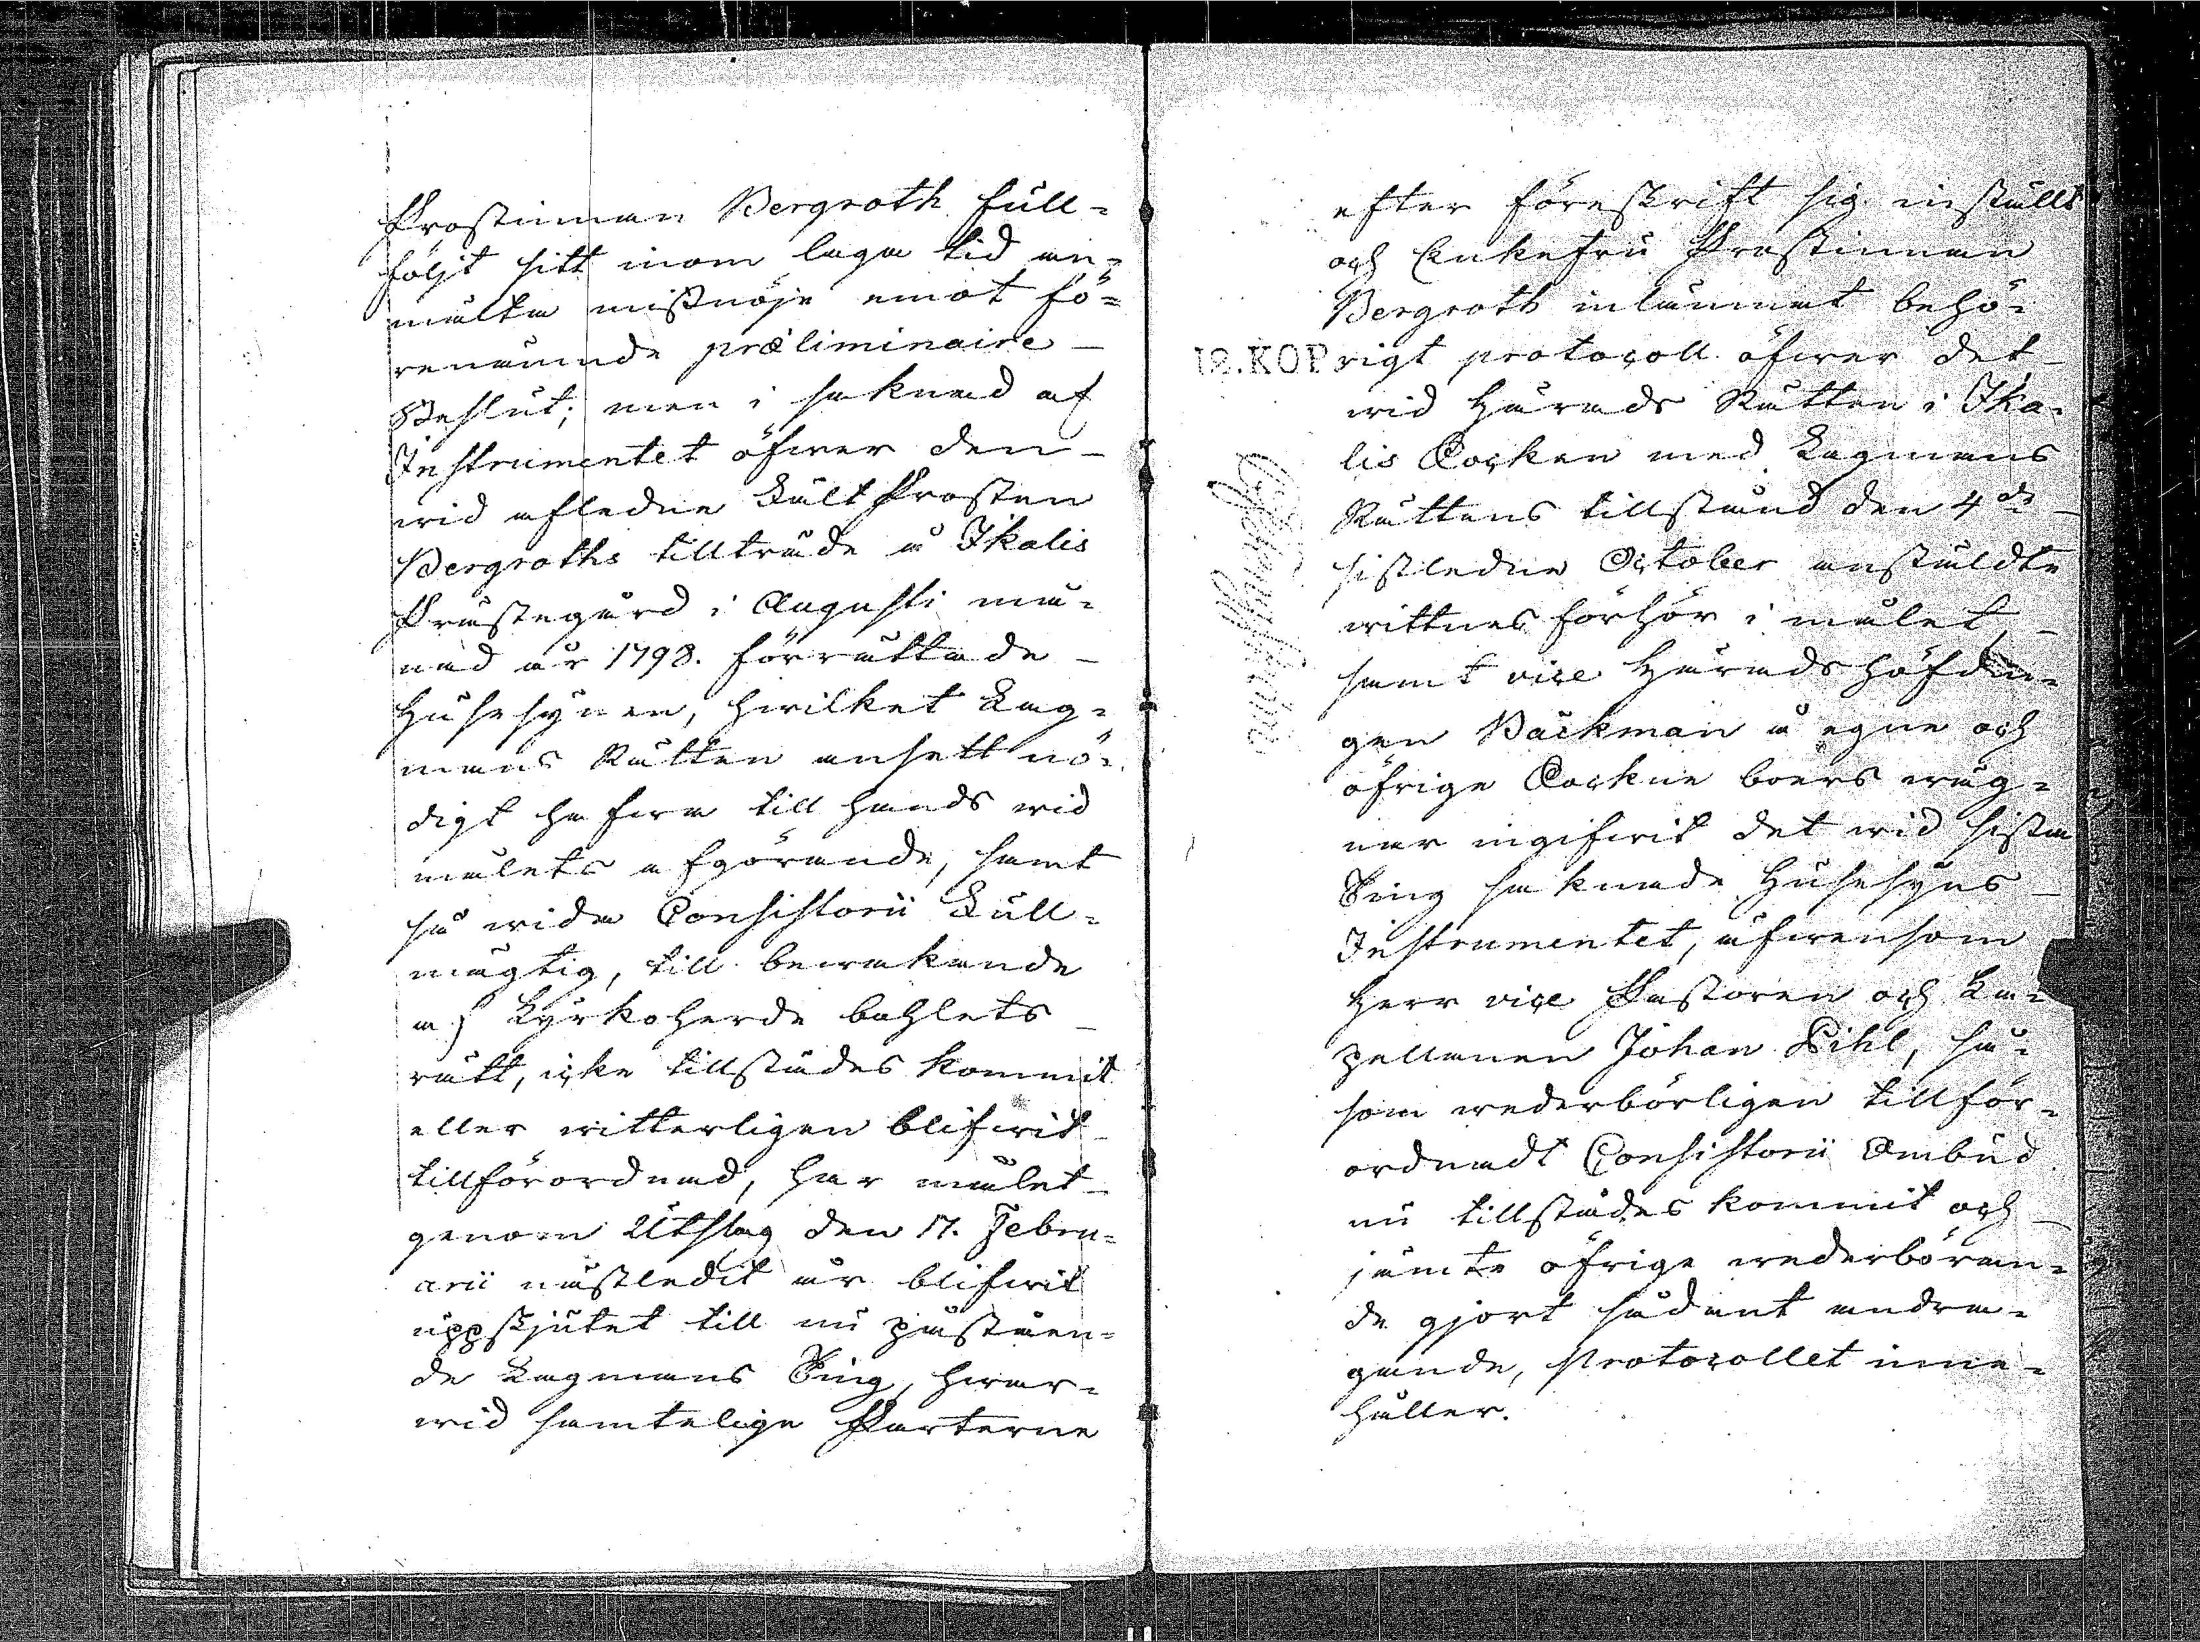 Prostinnan Bergroth full-
följt sitt inom laga tid an-
mälta missnöje emot fö-
renämnde præliminaire
Beslut; men i saknad af
Instrumentet öfwer den
wid afledne Fält Prosten
Bergroths tillträde å Ikalis
Prästegård i Augusti må-
nad år 1798. förrättade
Husesynen, hwilket Lag-
mans Rätten ansett nö-
digt hafwa till hands wid
målets afgörande, samt
så wida Consistorii Full-
mägtig, till bewakande
af Kyrkoherde bohlets
rätt, icke tillstädes kommit
eller witterligen blifwit
tillförordnad, har målet
genom Utslag den 17. Febru-
arii nästledit år blifwit
uppskjutet till nu påståen-
de Lagmans Ting, hwar-
wid samtelige Parterne
efter föreskrift sig inställt
och Enkefru Prostinnan
Bergroth inlämnat behö-
12. KOP
rigt protocoll öfwer det
wid Härads Rätten i Ika-
lis Socken med Lagmans
Rättens tillstånd den 4de
sistledne October anstäldte
wittnes förhör i målet,
samt vice Häradshöfdin-
gen Bäckman å egne och
öfrige Sockne boers wäg-
nar ingifwit det wid sista
Ting saknade Husesyns
Instrumentet, äfwensom
Herr vice Pastoren och Ca-
pellanen Johan Pihl, så-
som wederbörligen tillför-
ordnadt Consistorii Ombud
nu tillstädes kommit och
jämte öfrige wederböran-
de gjort sådant andra-
gande, Protocollet inne-
håller.